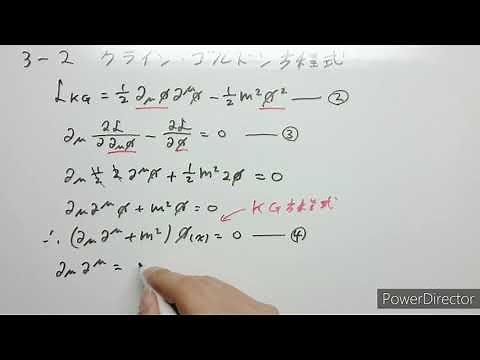 3-2 クライン・ゴルドン方程式
ℒKG = 1/2 ∂μφ∂^μφ - 1/2 m²φ² — ②
∂μ ∂ℒ/∂∂μφ - ∂ℒ/∂φ = 0 — ③
∂μ ∂^μφ + 1/2 m² 2φ = 0
∂μ∂^μφ + m²φ = 0
KG方程式
∴ (∂μ∂^μ + m²) φ(x) = 0 — ④
∂μ∂^μ =
PowerDirector